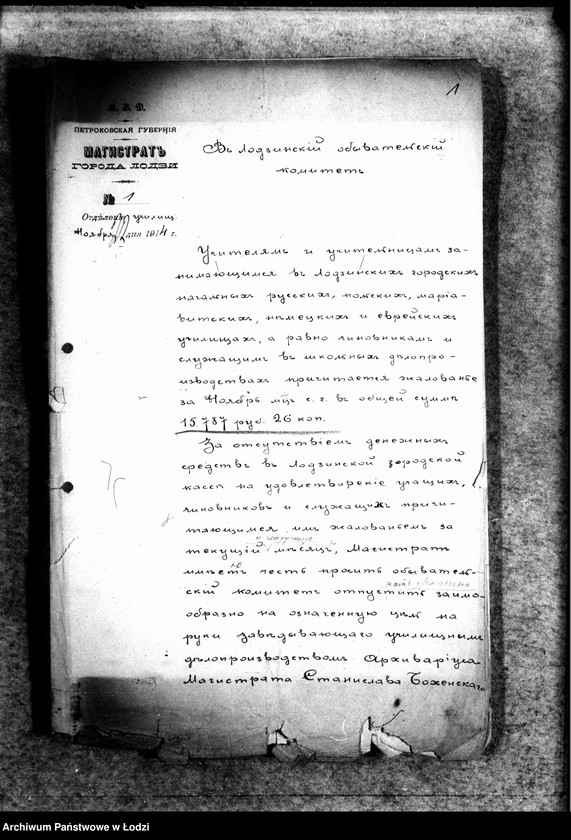 1
М. В. Д.
ПЕТРОКОВСКАЯ ГУБЕРНІЯ
МАГИСТРАТЪ
ГОРОДА ЛОДЗИ
№ 1
Отдѣленіе училищ.
Ноября дня 1914 г.
Въ Лодзинскій обывательскій
комитетъ
Учителямъ и учительницамъ за-
нимающимся въ Лодзинскихъ городскихъ
начальныхъ русскихъ, польскихъ, марiа-
витскихъ, нѣмецкихъ и еврейскихъ
училищахъ, а равно чиновникамъ и
служащимъ въ школьныхъ дѣлопро-
изводствахъ причитается жалованье
за Ноябрь мѣс. с. г. въ общей суммѣ
15.787 руб. 26 коп.
За отсутствіемъ денежныхъ
средствъ въ Лодзинской городской
кассѣ на удовлетвореніе учащихъ,
чиновниковъ и служащихъ причи-
тающимся имъ жалованьемъ за
текущій мѣсяцъ, Магистратъ
имѣетъ честь просить обыватель-
скій комитетъ отпустить заимо-
образно на означенную цѣль на
руки завѣдывающаго училищнымъ
дѣлопроизводствомъ Архиваріуса
Магистрата Станислава Боженскаго
Archiwum Państwowe w Łodzi